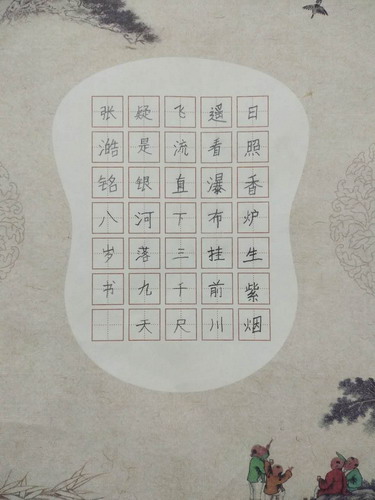 日照香炉生紫烟
遥看瀑布挂前川
飞流直下三千尺
疑是银河落九天
张澔铭八岁书